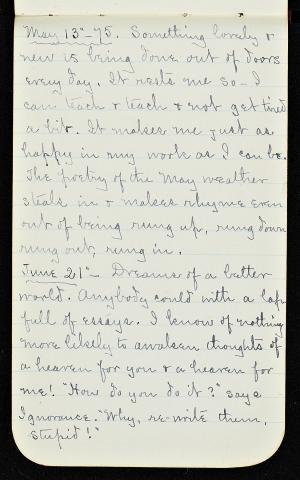 May 13"-75. Something lovely &
new is being done out of doors
every day. It rests me so - I
can teach & teach & not get tired
a bit. It makes me just as
happy in my work as I can be.
The poetry of the May weather
steals in & makes rhyme even
out of being rung up, rung down
rung out, rung in.
June 21"- Dreams of a better
world. Anybody could with a lap
full of essays. I know of nothing
more likely to awaken thoughts of
a heaven for you & a heaven for
me! "How do you do it?" says
Ignorance. "Why, re-write them,
stupid!"